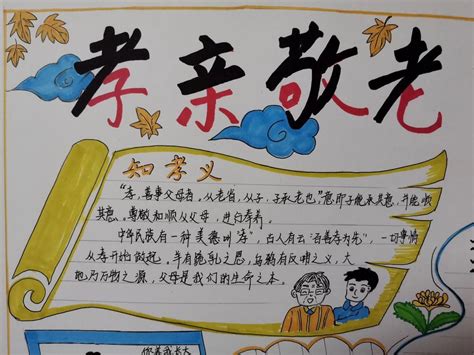 孝亲敬老
知孝义
"孝,善事父母者,从老省,从子,子承老也,"意即子能承其意,并能顺
其意。尊敬和顺从父母,进行孝养。
中华民族有一种美德叫"孝",古人有云"百善孝为先",一切事情
从孝开始做起,羊有跪乳之恩,乌鸦有反哺之义,大
地乃万物之源,父母是我们的生命之本。
你养我长大